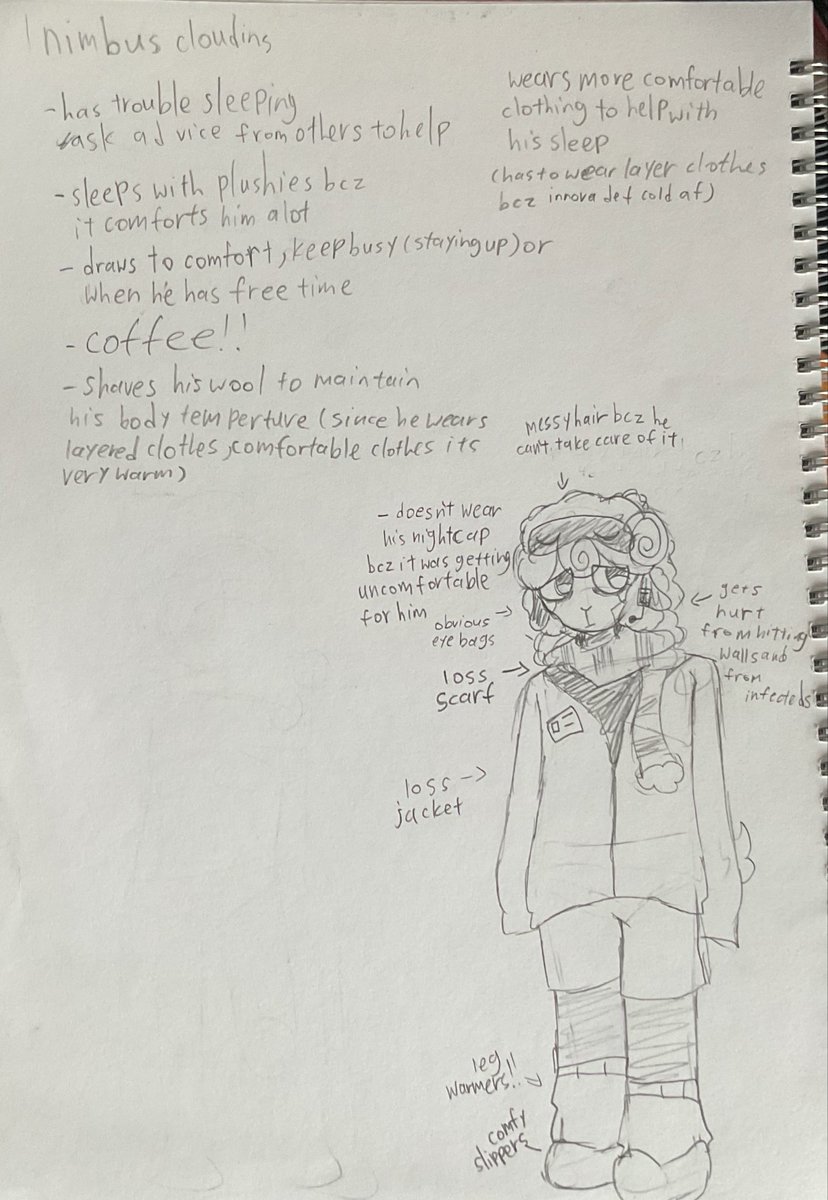 nimbus cloudins
- has trouble sleeping
ask advice from others to help
- sleeps with plushies bcz
it comforts him alot
- draws to comfort, keep busy (staying up) or
when he has free time
- coffee!!
- shaves his wool to maintain
his body temperture (since he wears
layered clothes, comfortable clothes its
very warm)
wears more comfortable
clothing to help with
his sleep
(has to wear layer clothes
bcz innova def cold af)
messy hair bcz he
can't take care of it
- doesn't wear
his nightcap
bcz it was getting
uncomfortable
for him
obvious
eye bags
gets
hurt
from hitting
walls and
from
infecteds
loss
scarf
loss
jacket
leg
warmers!!
comfy
slippers